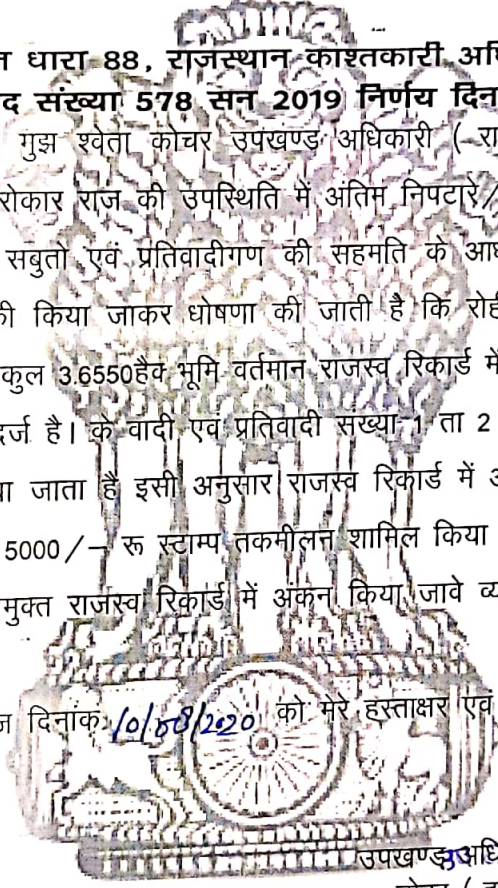 त धारा 88, राजस्थान काश्तकारी अधि
द संख्या 578 सन 2019 निर्णय दिन
गुझ श्वेता कोचर उपखण्ड अधिकारी ( रा
रोकार राज की उपस्थिति में अंतिम निपटारे /
सबुतो एवं प्रतिवादीगण की सहमति के आध
की किया जाकर घोषणा की जाती है कि रोही
कुल 3.6550हैक भूमि वर्तमान राजस्व रिकार्ड में
दर्ज है। के वादी एवं प्रतिवादी संख्या 1 ता 2
या जाता है इसी अनुसार राजस्व रिकार्ड में अ
5000/– रू स्टाम्प तकमीलन शामिल किया
मुक्त राजस्व रिकार्ड में अंकन किया जावे व्य
ज दिनांक 10/08/2020 को मेरे हस्ताक्षर एवं
उपखण्ड अधि